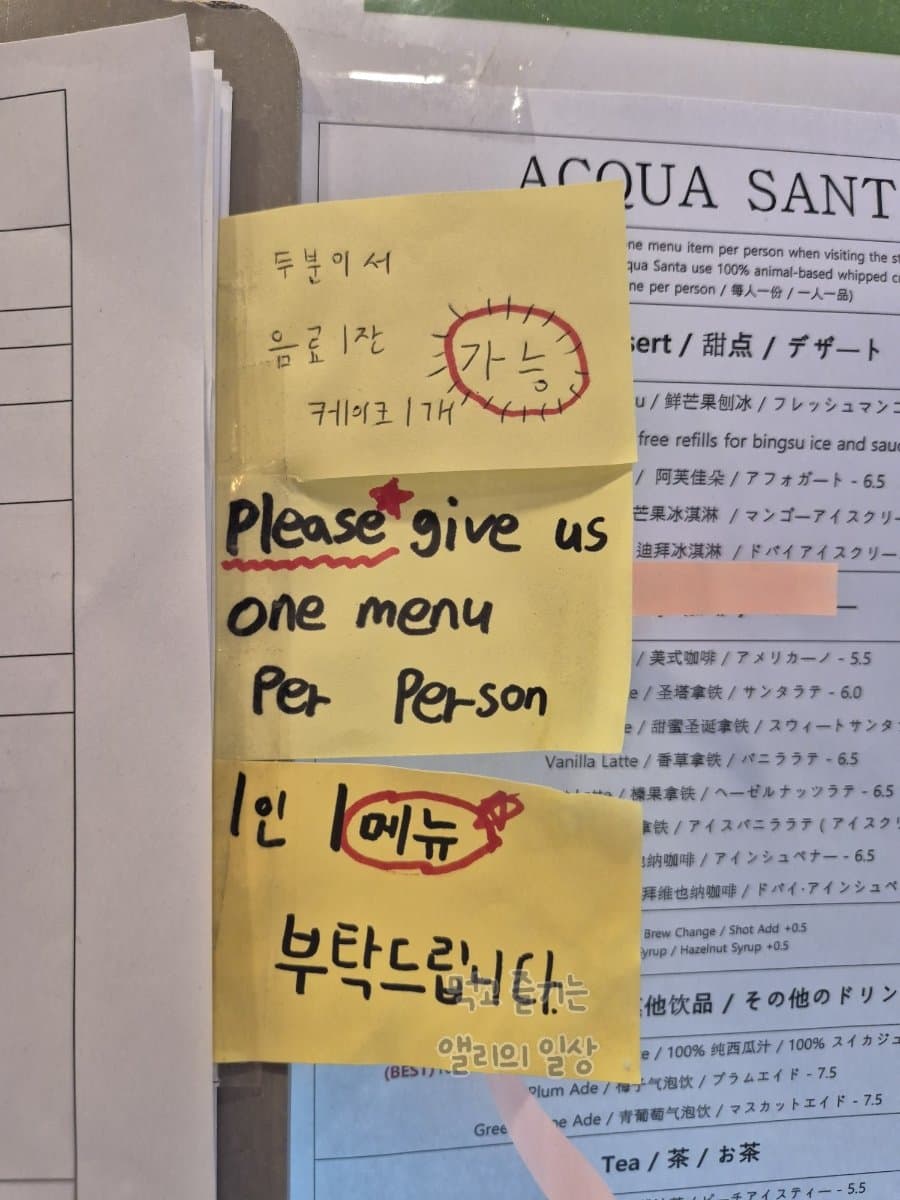 두분이서
음료 1잔
케이크 1개
가능
Please give us
one menu
Per Person
1인 1메뉴
부탁드립니다.
먹고 즐기는
앨리의 일상
ACQUA SANT
one menu item per person when visiting the
qua Santa use 100% animal-based whipped
one per person / 每人一份 / 一人一品)
/ 甜点 / デザート
/ 鲜芒果刨冰 / フレッシュマンゴ
free refills for bingsu ice and
/ 阿芙佳朵 / アフォガート - 6.5
芒果冰淇淋 / マンゴーアイスクリー
迪拜冰淇淋 / ドバイアイスクリー
/ 美式咖啡 / アメリカーノ - 5.5
/ 圣塔拿铁 / サンタラテ - 6.0
/ 甜蜜圣诞拿铁 / スウィートサンタ
Vanilla Latte / 香草拿铁 / バニララテ - 6.5
/ 榛果拿铁 / ヘーゼルナッツラテ - 6.5
拿铁 / アイスバニララテ ( アイスク
纳咖啡 / アインシュペナー - 6.5
拜维也纳咖啡 / ドバイ·アインシュペ
Brew Change / Shot Add +0.5
/ Hazelnut Syrup +0.5
他饮品 / その他のドリン
/ 100% 纯西瓜汁 / 100% スイカジュ
(BEST)
Plum Ade / 梅子气泡饮 / プラムエイド - 7.5
Ade / 青葡萄气泡饮 / マスカットエイド - 7.5
Tea / 茶 / お茶
ピーチアイスティー - 5.5